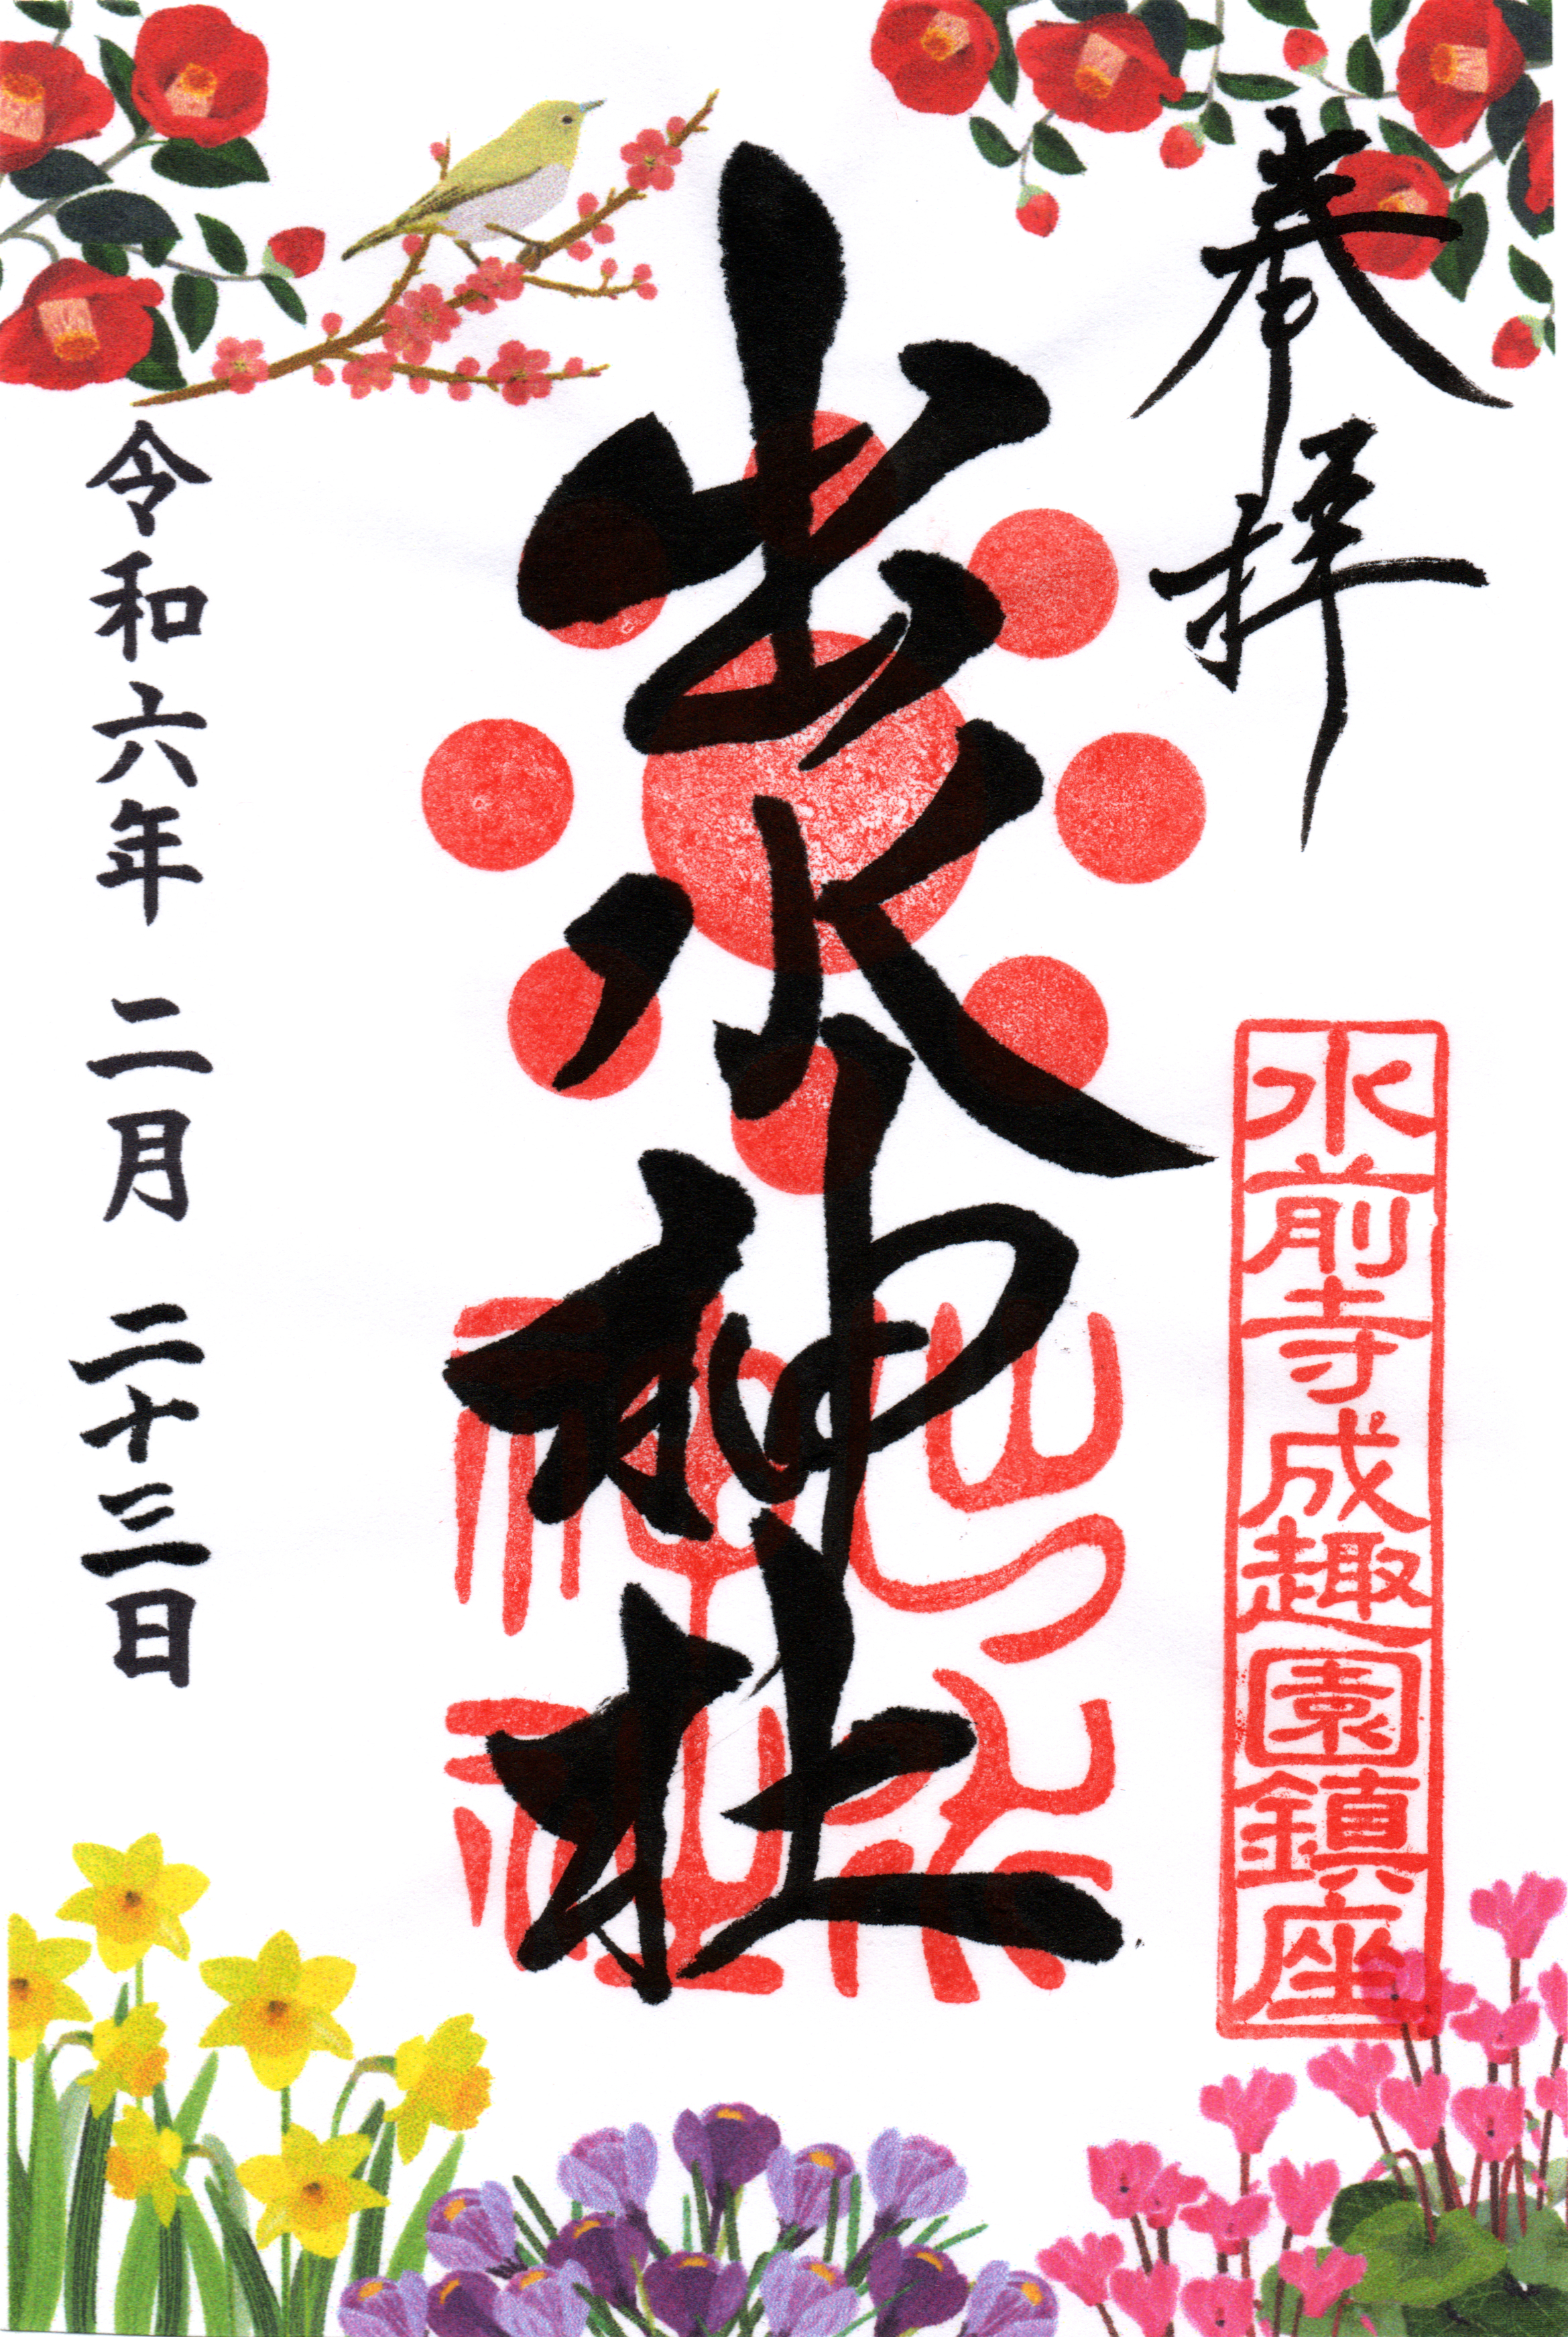 奉拝
水前寺成趣園鎮座
出水神社
令和六年 二月 二十三日